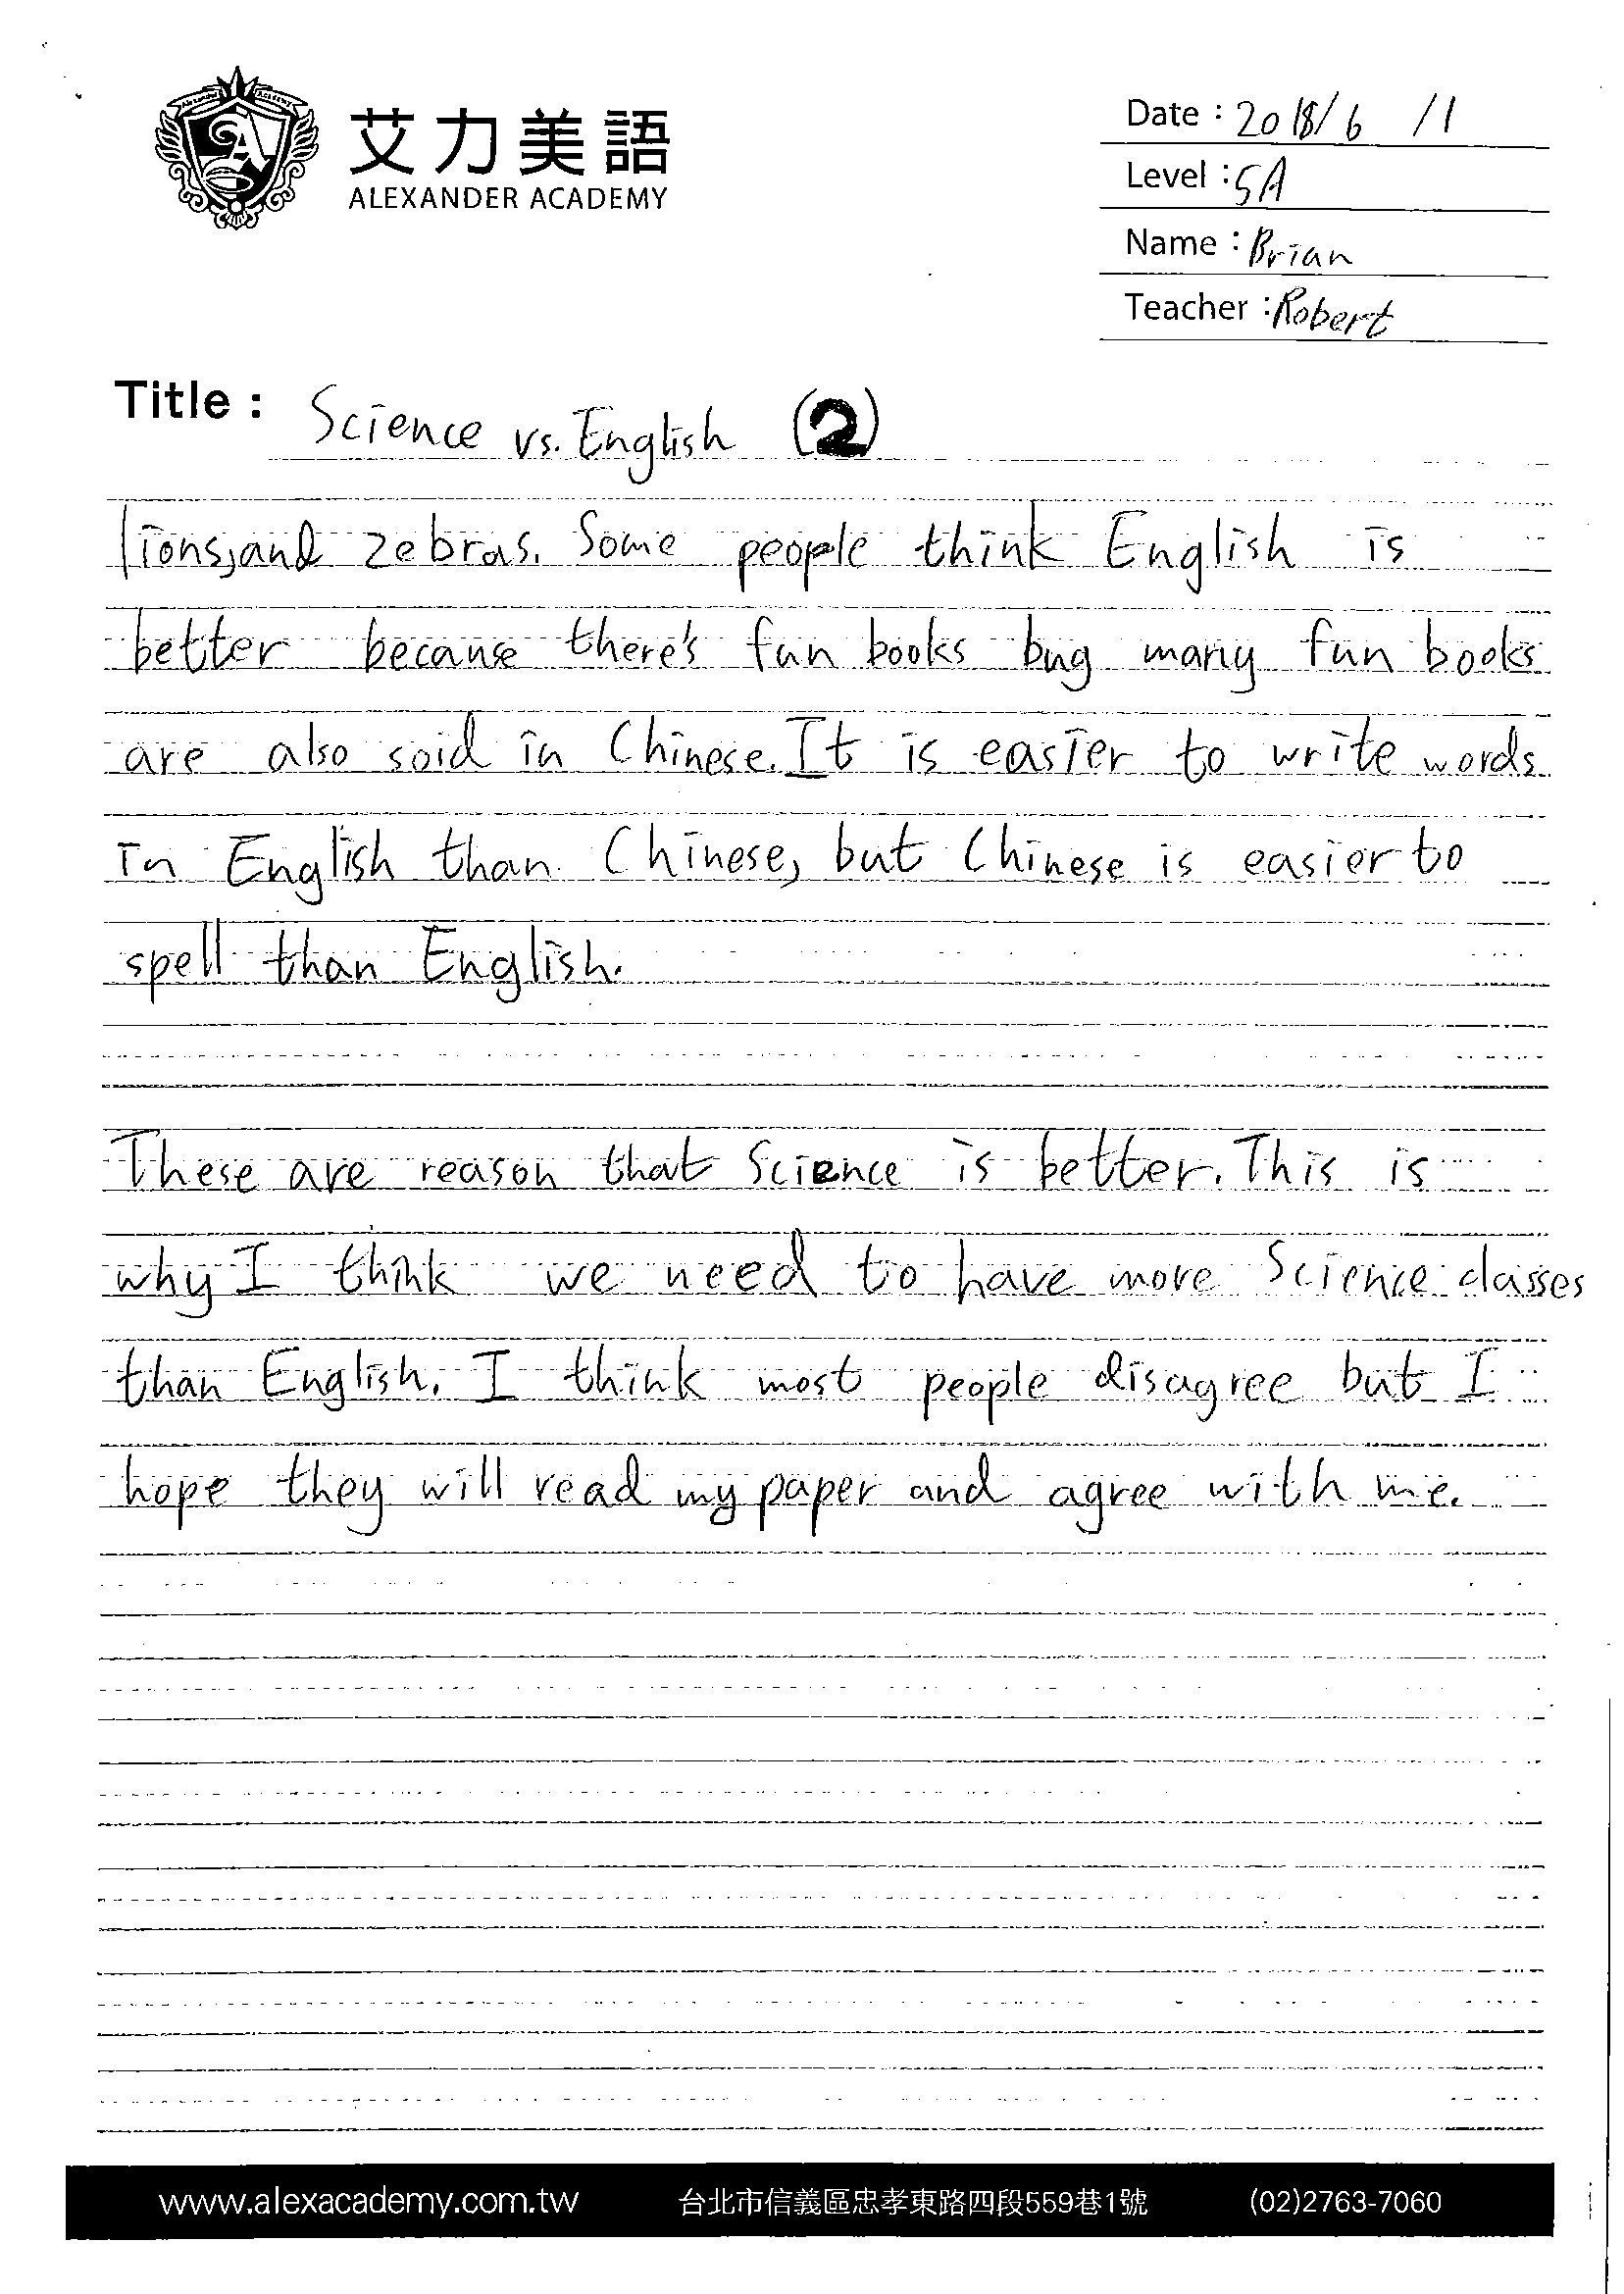 艾力美語
ALEXANDER ACADEMY
Date : 2018/6 /1
Level : 5A
Name : Brian
Teacher : Robert
Title : Science vs. English (2)
lions, and zebras. Some people think English is
better because there's fun books bug many fun books
are also soid in Chinese. It is easier to write words
in English than Chinese, but Chinese is easier to
spell than English.
These are reason that Science is better. This is
why I think we need to have more Science classes
than English. I think most people disagree but I
hope they will read my paper and agree with me.
www.alexacademy.com.tw 台北市信義區忠孝東路四段559巷1號 (02)2763-7060